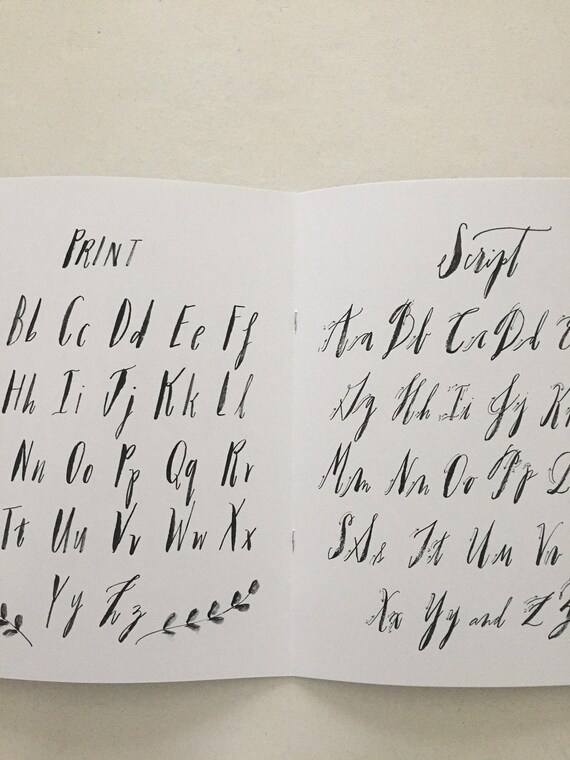 PRINT
Bb Cc Dd Ee Ff
Hh Ii Jj Kk Ll
Nn Oo Pp Qq Rr
Tt Uu Vv Ww Xx
Yy Zz
Script
Aa Bb Cc Dd
Gg Hh Ii Jj
Mm Nn Oo Pp
SSs Tt Uu Vv
Xx Yy and Z